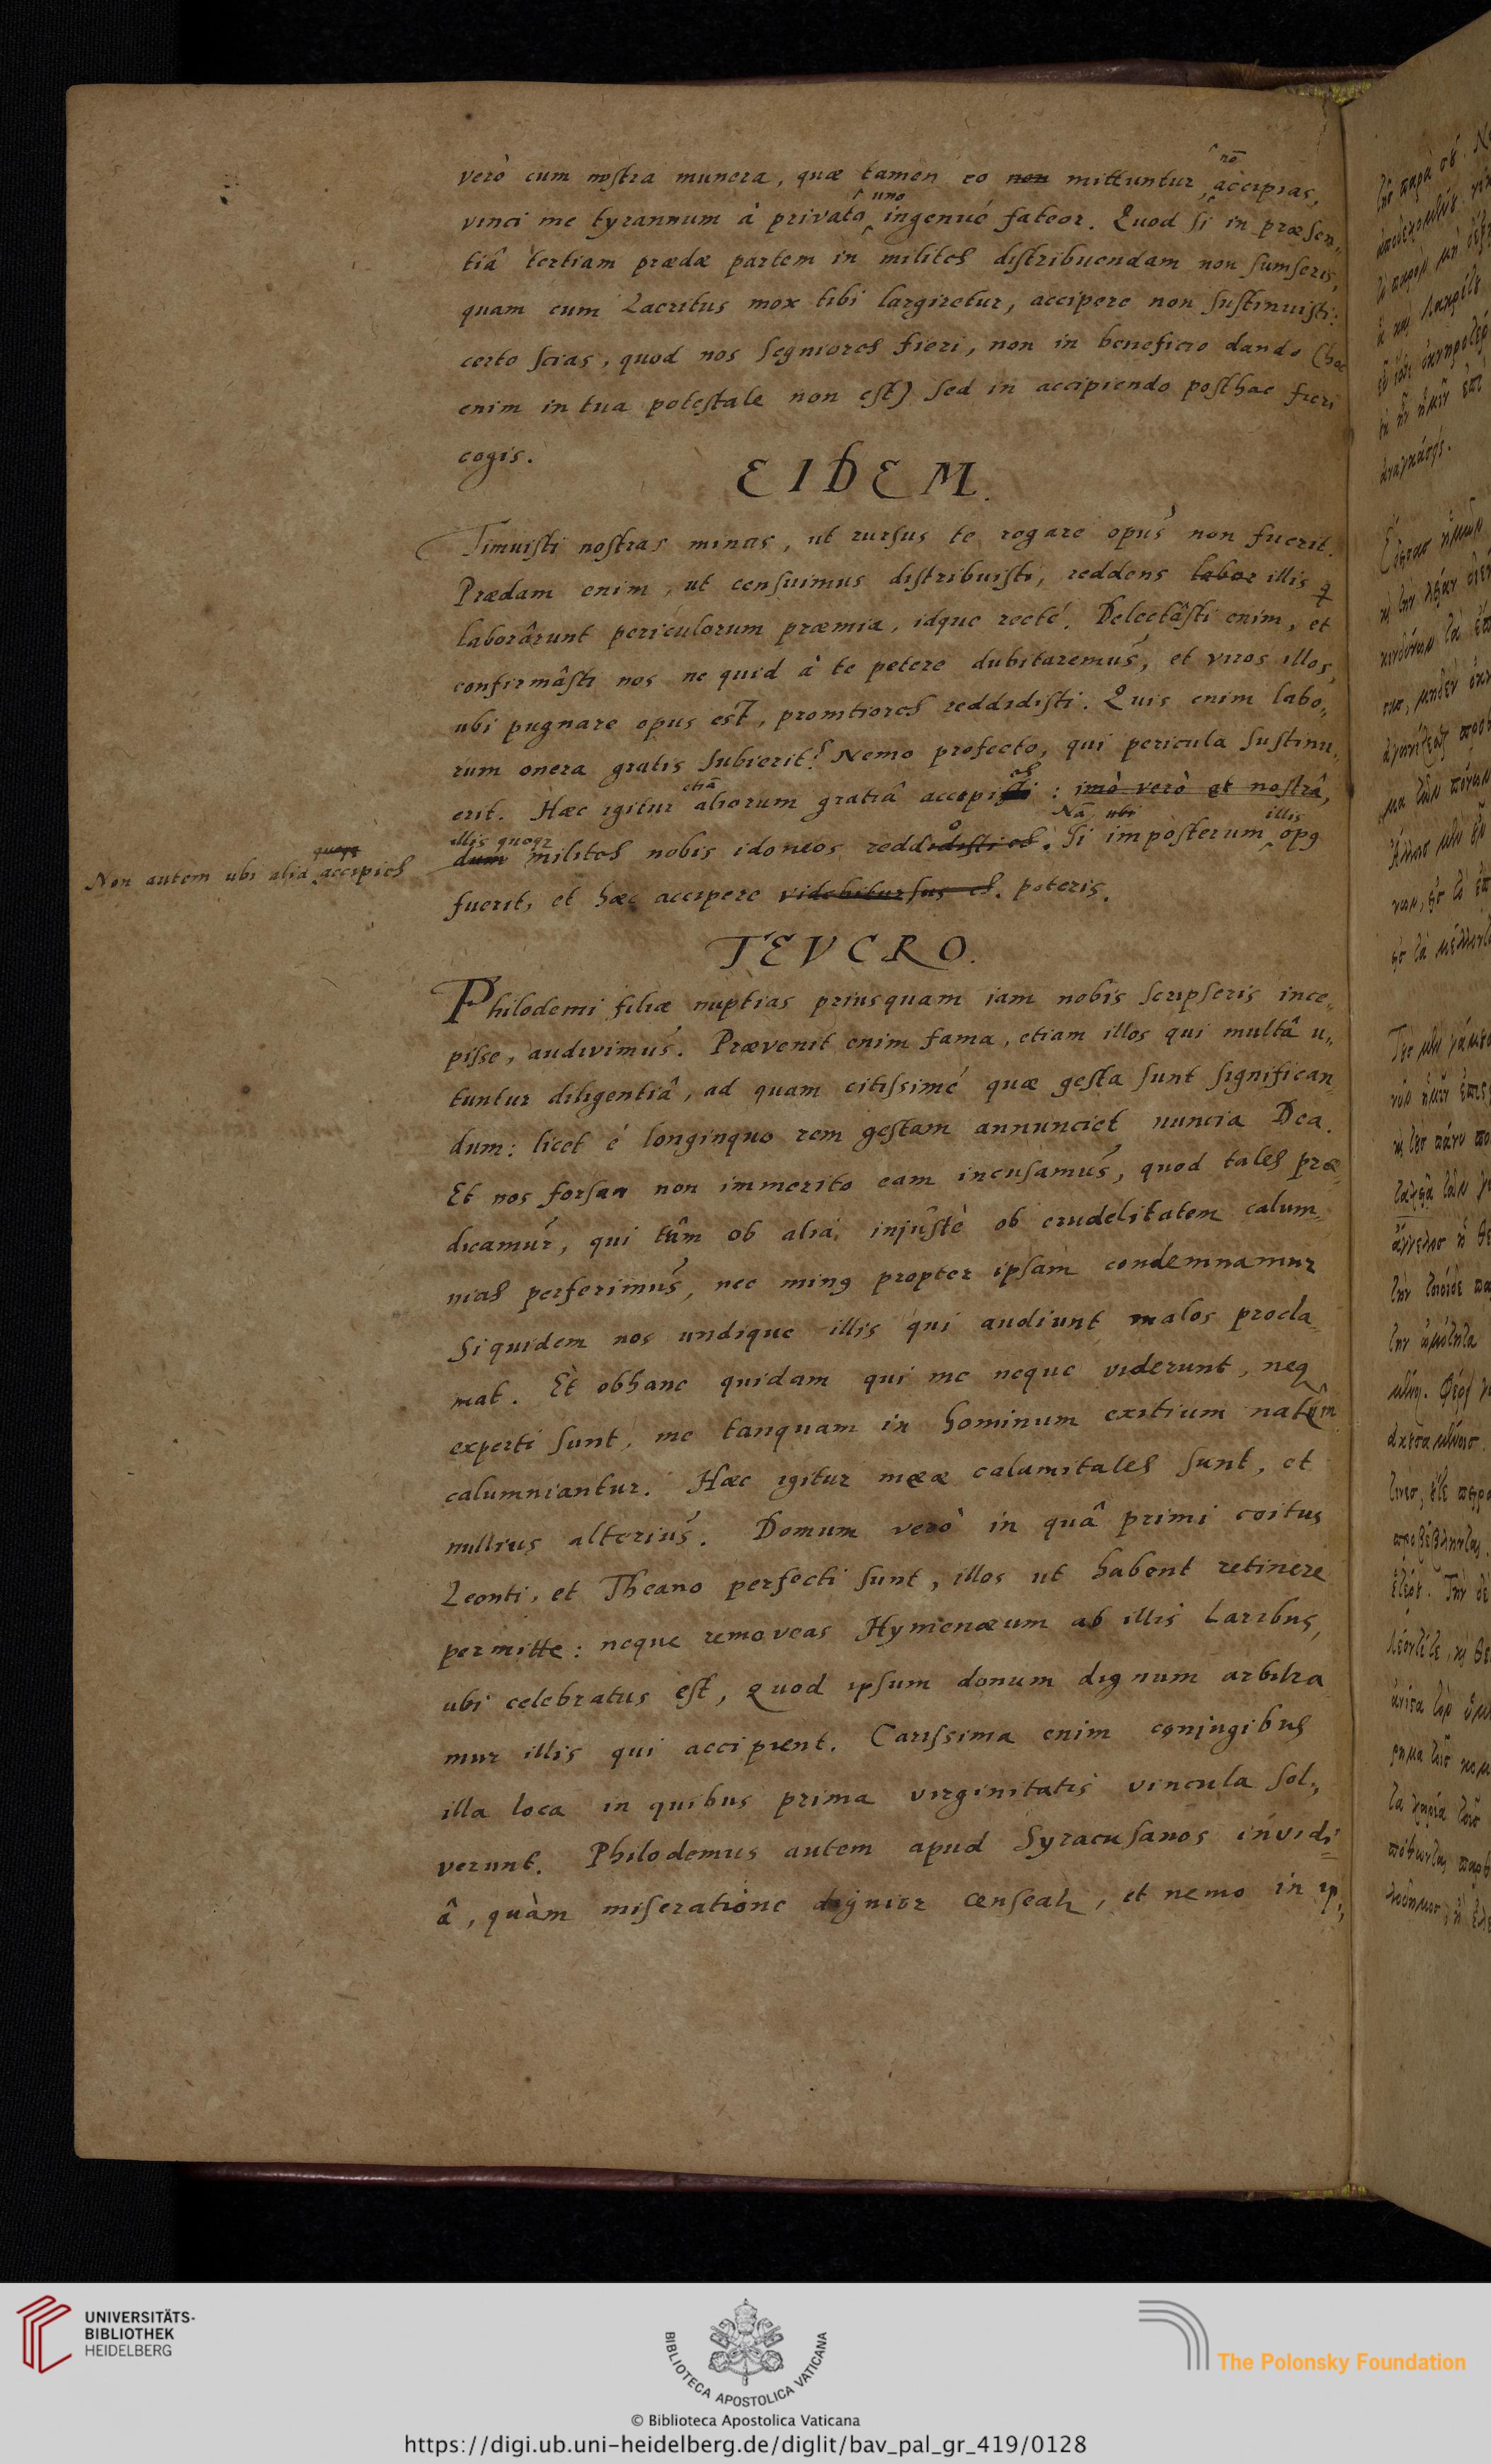 verò cum nostra munera, quæ tamen eo non mittuntur, nō accipias,
vinci me tyrannum à privato uno ingenué fateor. Quod si in præsen„
tiâ tertiam prædæ partem in milites distribuendam non sumseris,
quam cum Lacritus mox tibi largiretur, accipere non sustinuisti:
certo scias, quod nos segniores fieri, non in beneficio dando (hoc
enim in tua potestate non est) sed in accipiendo posthac fieri
cogis.
EIDEM.
Timuisti nostras minas, ut rursus te rogare opus non fuerit.
Prædam enim, ut censuimus distribuisti, reddens labor illis q
laborârunt periculorum præmia, idque recté. Delectâsti enim, et
confirmâsti nos ne quid à te petere dubitaremus, et viros illos,
ubi pugnare opus est, promtiores reddidisti. Quis enim labo„
rum onera gratis subierit? Nemo profecto, qui pericula sustinu„
erit. Hæc igitur etiā aliorum gratiâ accepi : imò verò et nostrâ,
illis quoqz Nā ubi illis
dum milites nobis idoneos reddidisti es. Si imposterum opg
Non autem ubi alia quoqz accipies
fuerit, et hæc accipere videbitur sus es. poteris.
TEVCRO.
Philodemi filiæ nuptias priusquam iam nobis scripseris ince„
pisse, audivimus. Prævenit enim fama, etiam illos qui multâ u„
tuntur diligentiâ, ad quam citissimé quæ gesta sunt significan
dum: licet é longinquo rem gestam annunciet nuncia Dea.
Et nos forsan non immerito eam incusamus, quod tales præ
dicamur, qui tûm ob alia, injustè ob crudelitatem calum„
nias perferimus, nec ming propter ipsam condemnamur
Siquidem nos undique illis qui audiunt malos procla„
mat. Et obhanc quidam qui me neque viderunt, neq
experti sunt, me tanquam in hominum exitium natûm
calumniantur. Hæc igitur meæ calamitates sunt, et
nullius alterius. Domum verò in quâ primi coitus
Leonti, et Theano perfecti sunt, illos ut habent retinere
permitte: neque removeas Hymenæum ab illis Laribus,
ubi celebratus est, quod ipsum donum dignum arbitra
mur illis qui accipient. Carissima enim conjugibus
illa loca in quibus prima virginitatis vincula sol„
verunt. Philodemus autem apud Syracusanos invidi„
â, quàm miseratione dignior censeatr, et nemo in ip„
UNIVERSITÄTS-
BIBLIOTHEK
HEIDELBERG
BIBLIOTECA APOSTOLICA VATICANA
The Polonsky Foundation
© Biblioteca Apostolica Vaticana
https://digi.ub.uni-heidelberg.de/diglit/bav_pal_gr_419/0128